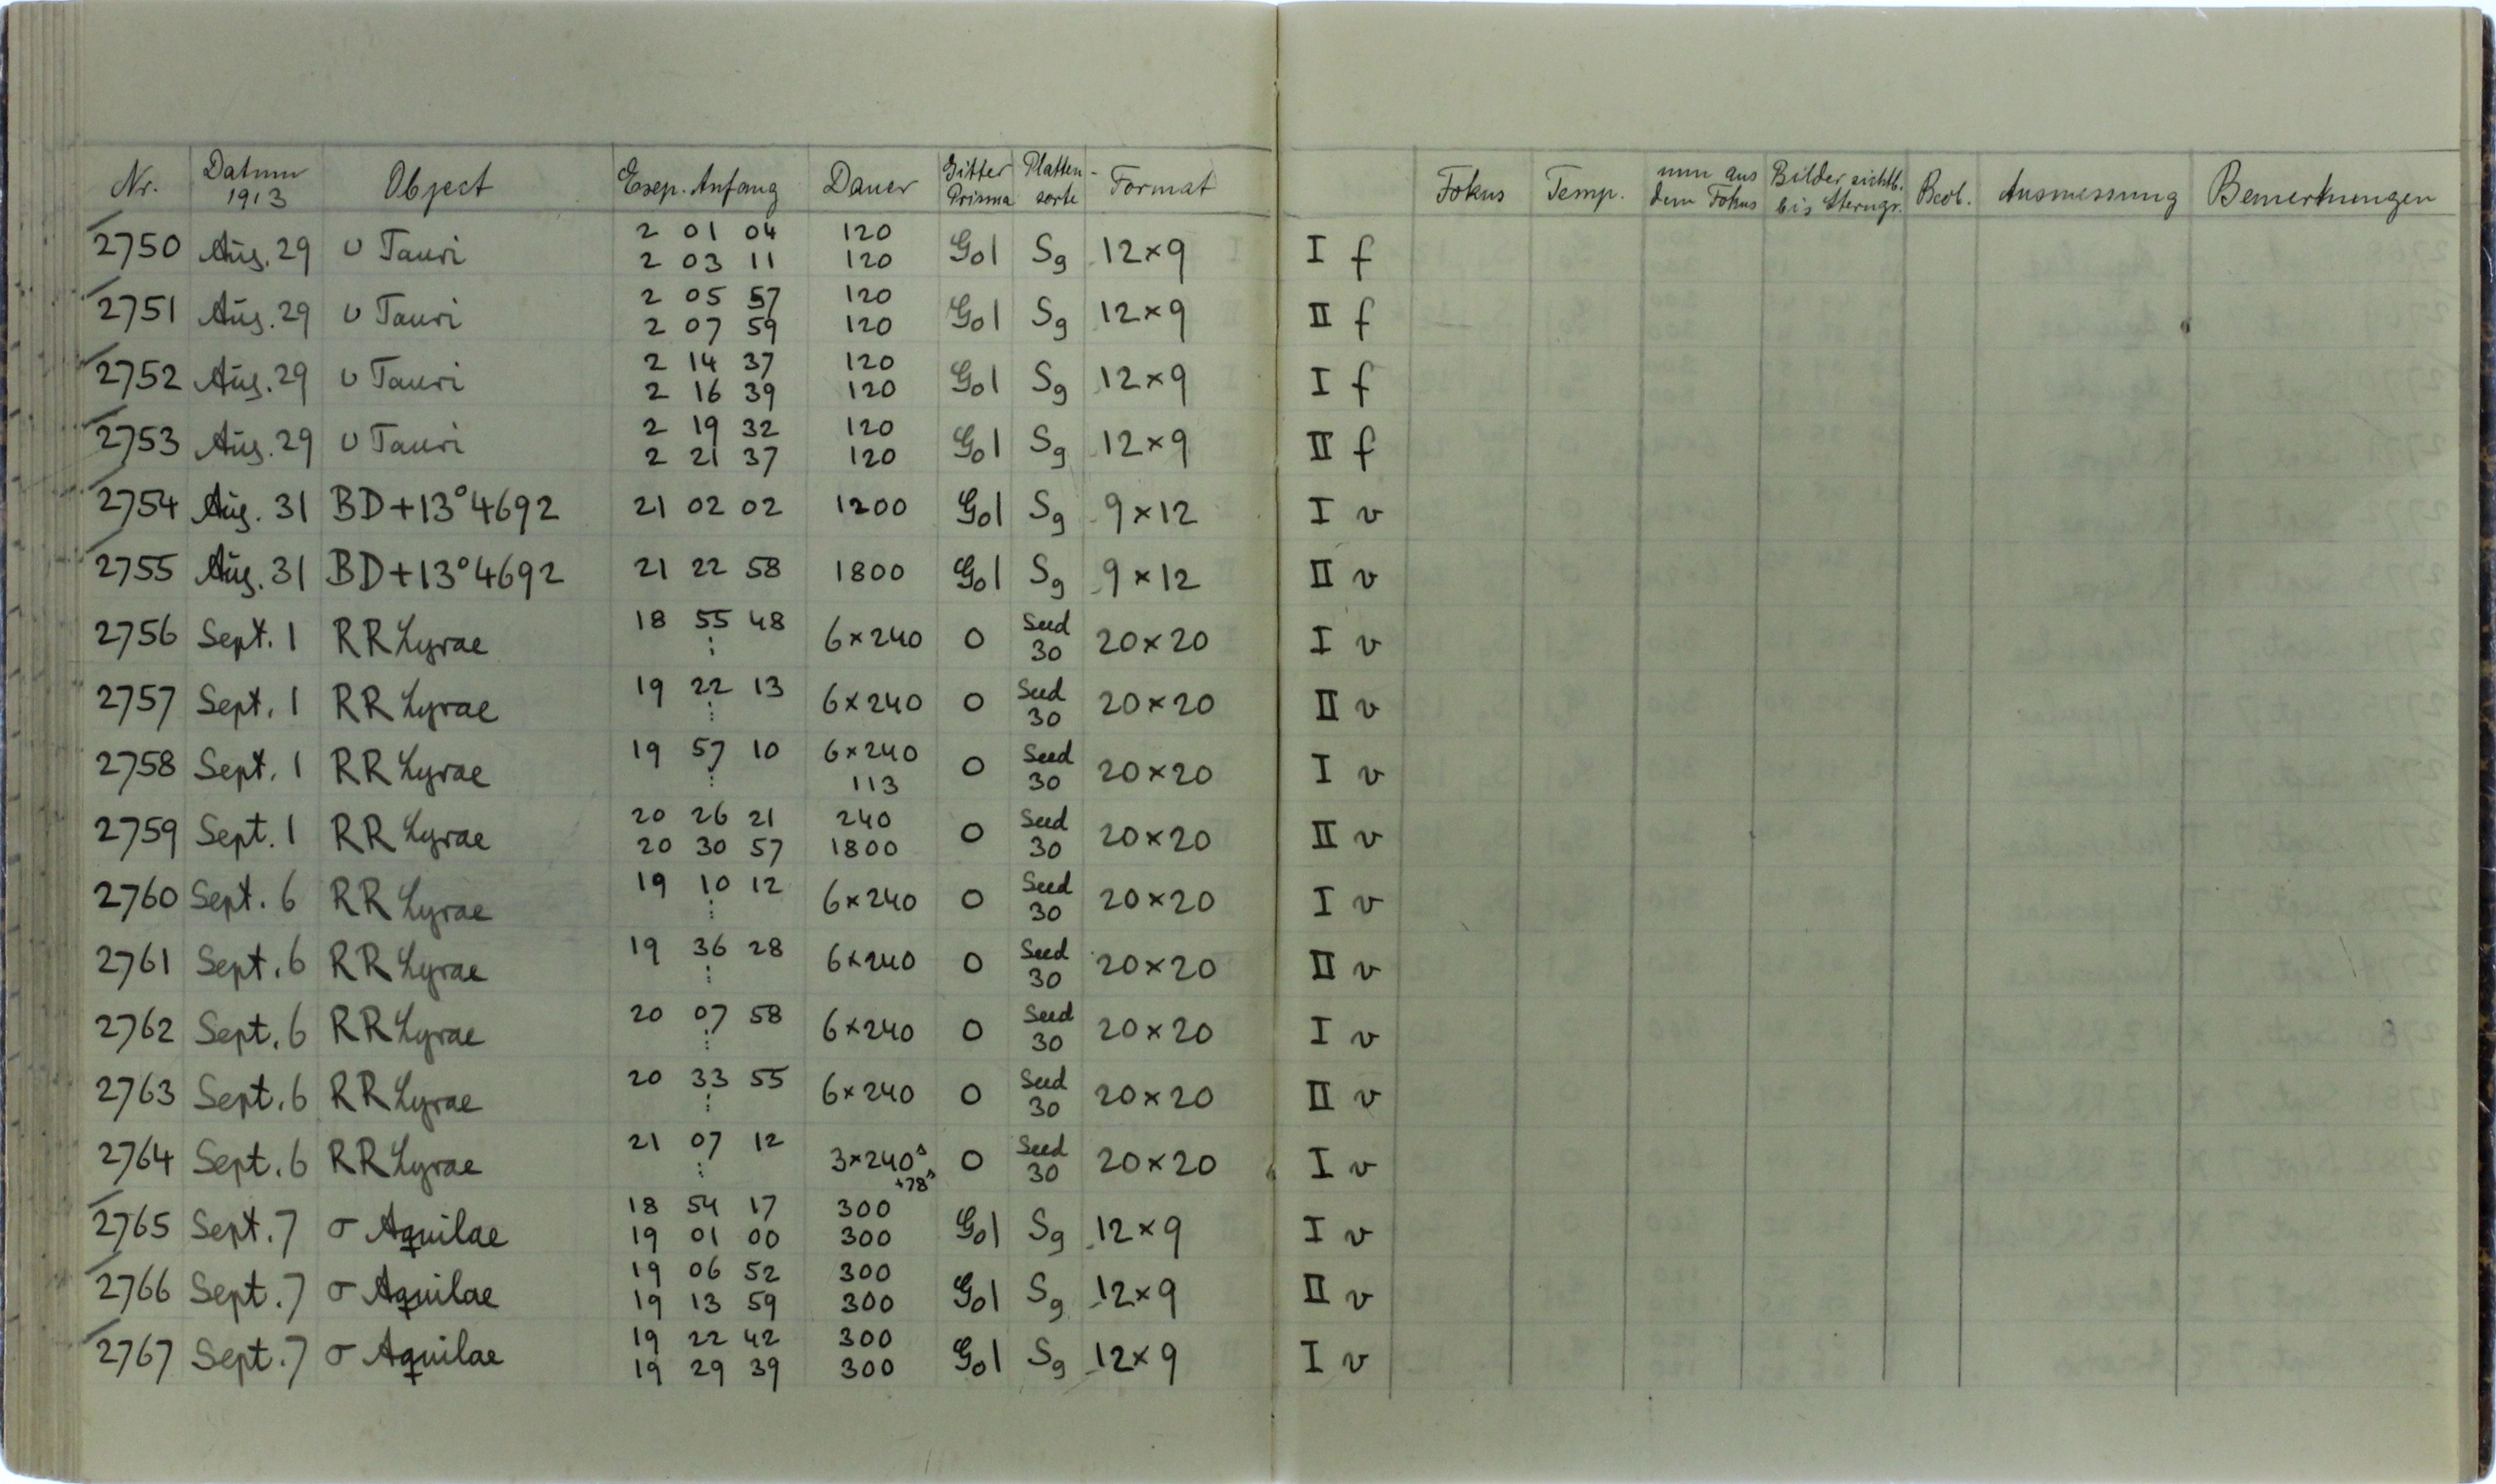 Nr. Datum 1913 Object Exp. Anfang Dauer Gitter Prisma Platten-sorte Format Fokus Temp. mm aus dem Fokus Bilder sichtb. bis Sterngr. Beob. Ausmessung Bemerkungen
2750 Aug. 29 υ Tauri 2 01 04 120 Gol Sg 12×9 I f
2 03 11 120
2751 Aug. 29 υ Tauri 2 05 57 120 Gol Sg 12×9 II f
2 07 59 120
2752 Aug. 29 υ Tauri 2 14 37 120 Gol Sg 12×9 I f
2 16 39 120
2753 Aug. 29 υ Tauri 2 19 32 120 Gol Sg 12×9 II f
2 21 37 120
2754 Aug. 31 BD+13°4692 21 02 02 1200 Gol Sg 9×12 I v
2755 Aug. 31 BD+13°4692 21 22 58 1800 Gol Sg 9×12 II v
2756 Sept. 1 RR Lyrae 18 55 48 ⋮ 6×240 0 Seed 30 20×20 I v
2757 Sept. 1 RR Lyrae 19 22 13 ⋮ 6×240 0 Seed 30 20×20 II v
2758 Sept. 1 RR Lyrae 19 57 10 ⋮ 6×240 0 Seed 30 20×20 I v
113
2759 Sept. 1 RR Lyrae 20 26 21 240 0 Seed 30 20×20 II v
20 30 57 1800
2760 Sept. 6 RR Lyrae 19 10 12 ⋮ 6×240 0 Seed 30 20×20 I v
2761 Sept. 6 RR Lyrae 19 36 28 ⋮ 6×240 0 Seed 30 20×20 II v
2762 Sept. 6 RR Lyrae 20 07 58 ⋮ 6×240 0 Seed 30 20×20 I v
2763 Sept. 6 RR Lyrae 20 33 55 ⋮ 6×240 0 Seed 30 20×20 II v
2764 Sept. 6 RR Lyrae 21 07 12 ⋮ 3×240s 0 Seed 30 20×20 I v
+78s
2765 Sept. 7 σ Aquilae 18 54 17 300 Gol Sg 12×9 I v
19 01 00 300
2766 Sept. 7 σ Aquilae 19 06 52 300 Gol Sg 12×9 II v
19 13 59 300
2767 Sept. 7 σ Aquilae 19 22 42 300 Gol Sg 12×9 I v
19 29 39 300